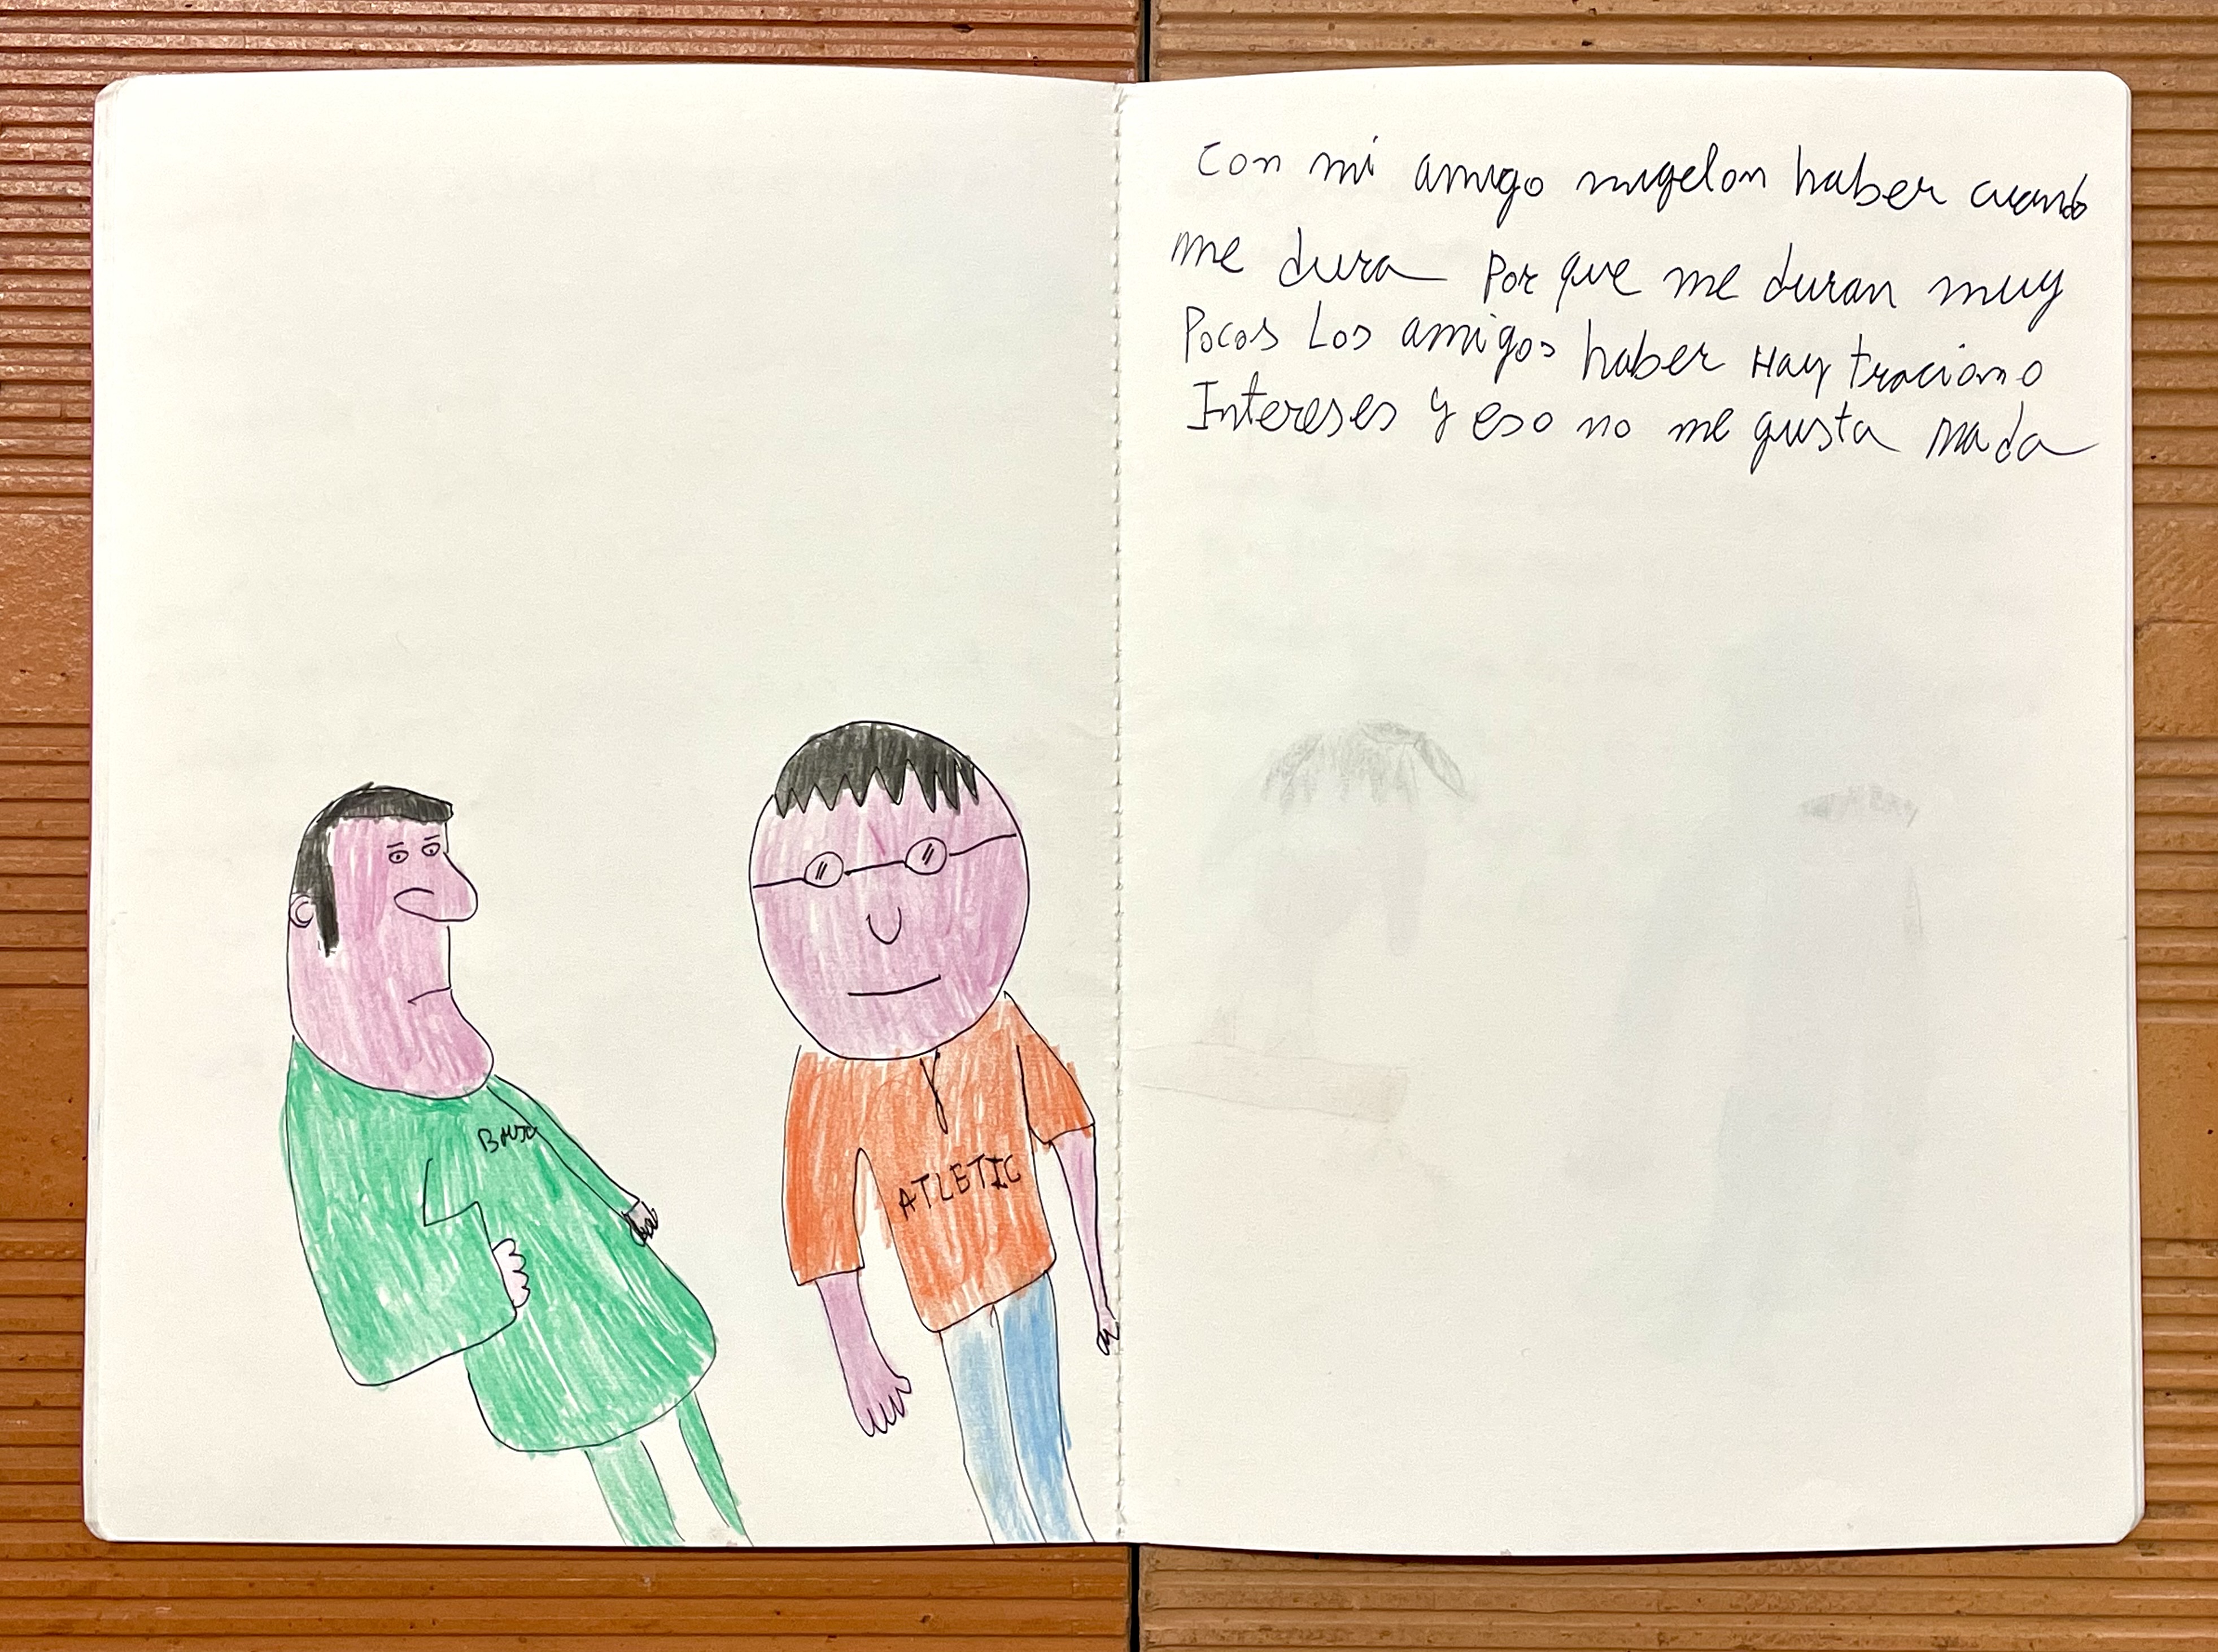 Con mi amigo migelon haber cuando
me dura Por que me duran muy
Pocos Los amigos haber Hay tracion o
Intereses y eso no me gusta nada
ATLETIC